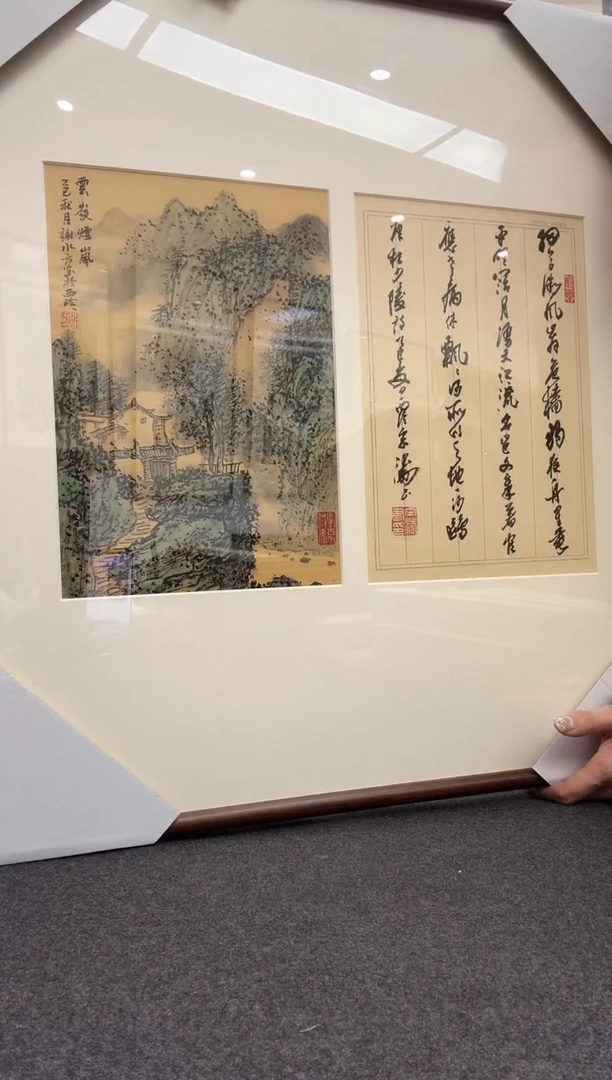 雲嶺煙嵐
乙巳秋月謝水方写於西泠
細草微風岸危檣獨夜舟星垂
平野闊月湧大江流名豈文章著官
應老病休飄〻何所似天地一沙鷗
唐杜少陵詩